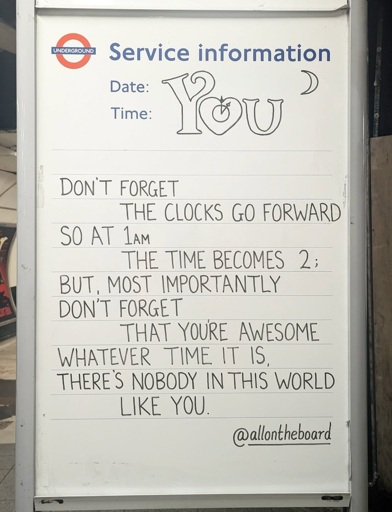 UNDERGROUND
Service information
Date:
Time:
YOU
DON'T FORGET
THE CLOCKS GO FORWARD
SO AT 1AM
THE TIME BECOMES 2;
BUT, MOST IMPORTANTLY
DON'T FORGET
THAT YOU'RE AWESOME
WHATEVER TIME IT IS,
THERE'S NOBODY IN THIS WORLD
LIKE YOU.
@allontheboard